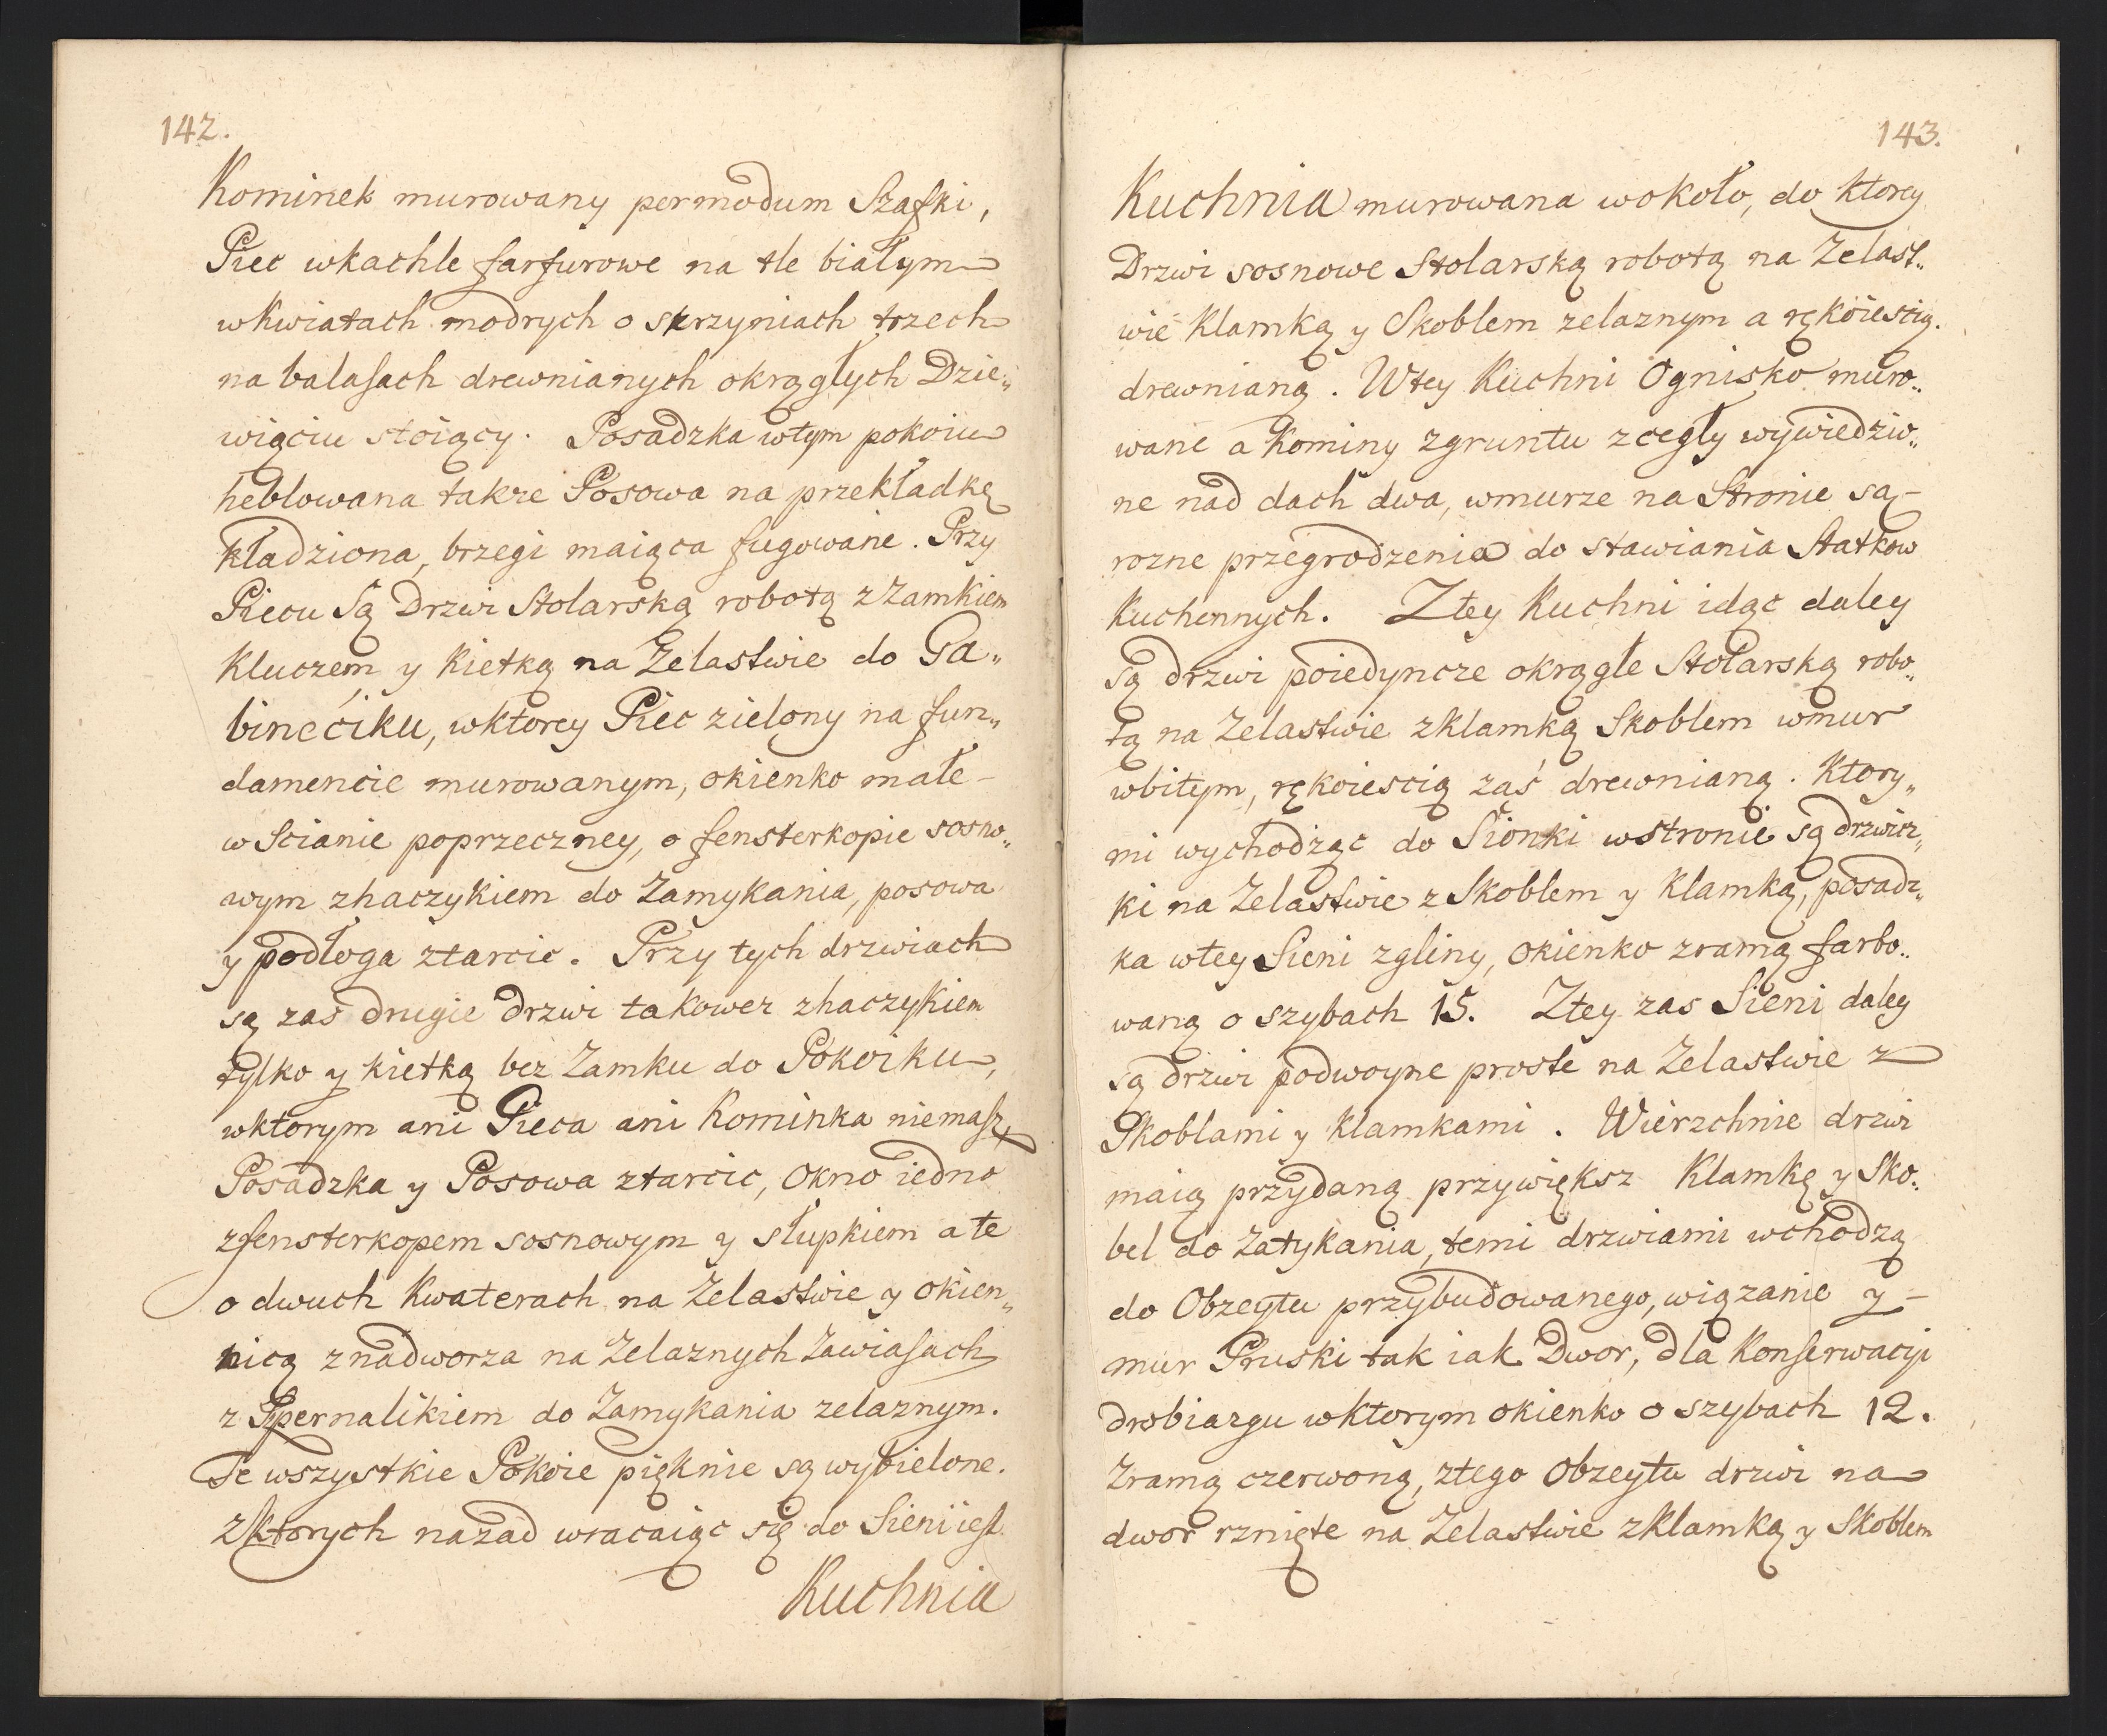 142.
Kominek murowany per modum Szafki,
Piec w kachle farfurowe na tle białym
w kwiatach modrych o skrzyniach trzech
na balasach drewnianych okrągłych Dzie„
wiąciu stoiący. Posadzka w tym pokoiu
heblowana takze Posowa na przekładkę
kładziona, brzegi maiąca fugowane. Przy
Piecu są Drzwi Stolarską robotą z Zamkiem
Kluczem y Kietką na Zelastwie do Ga„
bineciku, w ktorey Piec zielony na fun„
damencie murowanym, okienko małe –
w Scianie poprzeczney, o fensterkopie sosno„
wym z haczykiem do Zamykania, posowa
y podłoga z tarcic. Przy tych drzwiach
są zas drugie drzwi takowez z haczykiem
tylko y kietką bez Zamku do Pokoiku,
w ktorym ani Pieca ani Kominka niemasz,
Posadzka y Posowa z tarcic, Okno iedno
z fensterkopem sosnowym y słupkiem a te
o dwuch Kwaterach na Zelastwie y okien„
nicą z nadworza na Zelaznych Zawiasach
z Szpernalikiem do Zamykania zelaznym.
Te wszystkie Pokoie pięknie są wybielone.
Z ktorych nazad wracaiąc się do Sieni iest
Kuchnia
143.
Kuchnia murowana wokoło, do ktorey
Drzwi sosnowe Stolarską robotą na Zelast„
wie Klamką y Skoblem zelaznym a rękoiescią.
drewnianą. W tey Kuchni Ognisko muro„
wane a Kominy z gruntu z cegły wywiedzio„
ne nad dach dwa, w murze na Stronie są –
rozne przegrodzenia do stawiania Statkow
Kuchennych. Z tey Kuchni idąc daley
są drzwi poiedyncze okrągłe Stolarską robo„
tą na Zelastwie z klamką Skoblem w mur
wbitym, rękoiescią zaś drewnianą. Ktory„
mi wychodząc do Sionki w stronie są drzwicz„
ki na Zelastwie z Skoblem y Klamką, posadz„
ka w tey Sieni z gliny, okienko z ramą farbo„
waną o szybach 15. Z tey zas Sieni daley
są drzwi podwoyne proste na Zelastwie z
Skoblami y Klamkami. Wierzchnie drzwi
maią przydaną przywiększ Klamkę y Sko„
bel do Zatykania, temi drzwiami wchodzą
do Obzeytu przybudowanego, wiązanie y –
mur Pruski tak iak Dwor, dla Konserwacyi
drobiazgu w ktorym okienko o szybach 12.
Z ramą czerwoną, z tego Obzeytu drzwi na
dwor rznięte na Zelastwie z Klamką y Skoblem